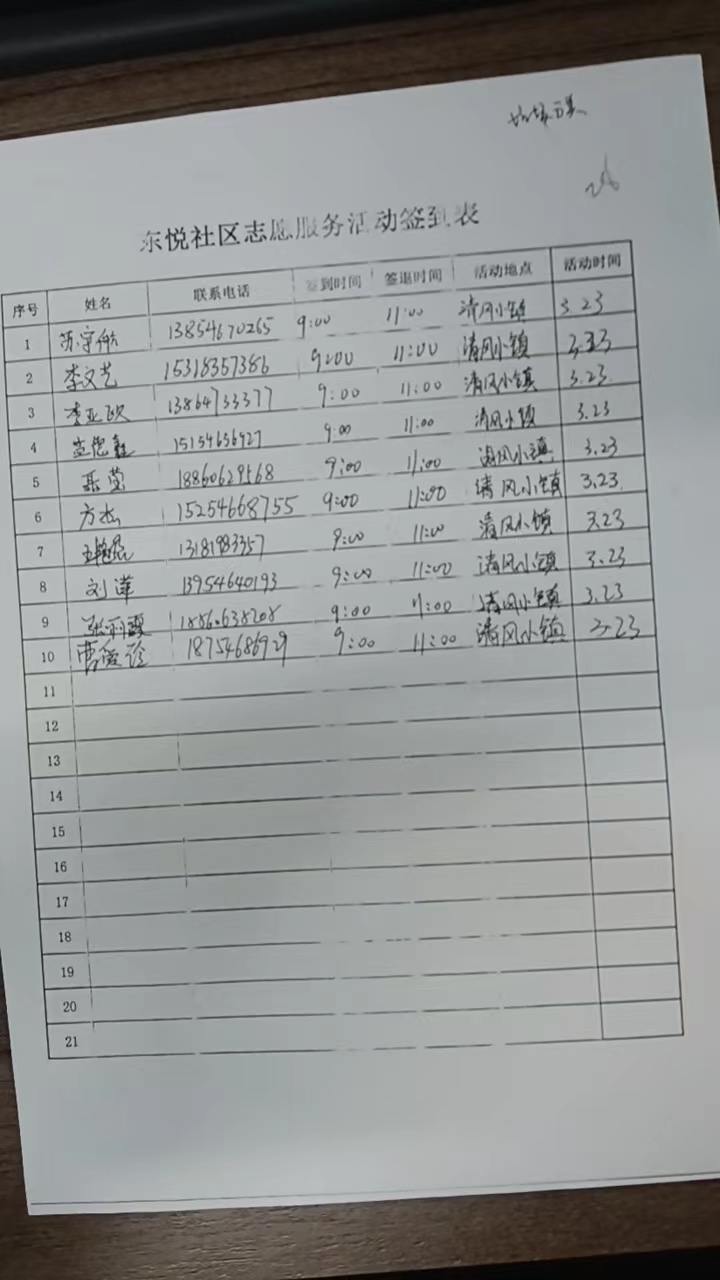 东悦社区志愿服务活动签到表
序号 姓名 联系电话 签到时间 签退时间 活动地点 活动时间
1 苏宇航 13854670265 9:00 11:00 清风小镇 3.23
2 李文艺 15318357386 9:00 11:00 清风小镇 3.23
3 李亚欧 13864733377 9:00 11:00 清风小镇 3.23
4 15154656927 9:00 11:00 清风小镇 3.23
5 聂莹 18860629568 9:00 11:00 清风小镇 3.23
6 方杰 15254668755 9:00 11:00 清风小镇 3.23
7 9:00 11:00 清风小镇 3.23
8 刘萍 13954640193 9:00 11:00 清风小镇 3.23
9 张丽霞 18860638208 9:00 11:00 清风小镇 3.23
10 曹爱珍 18754686929 9:00 11:00 清风小镇 3.23
11
12
13
14
15
16
17
18
19
20
21